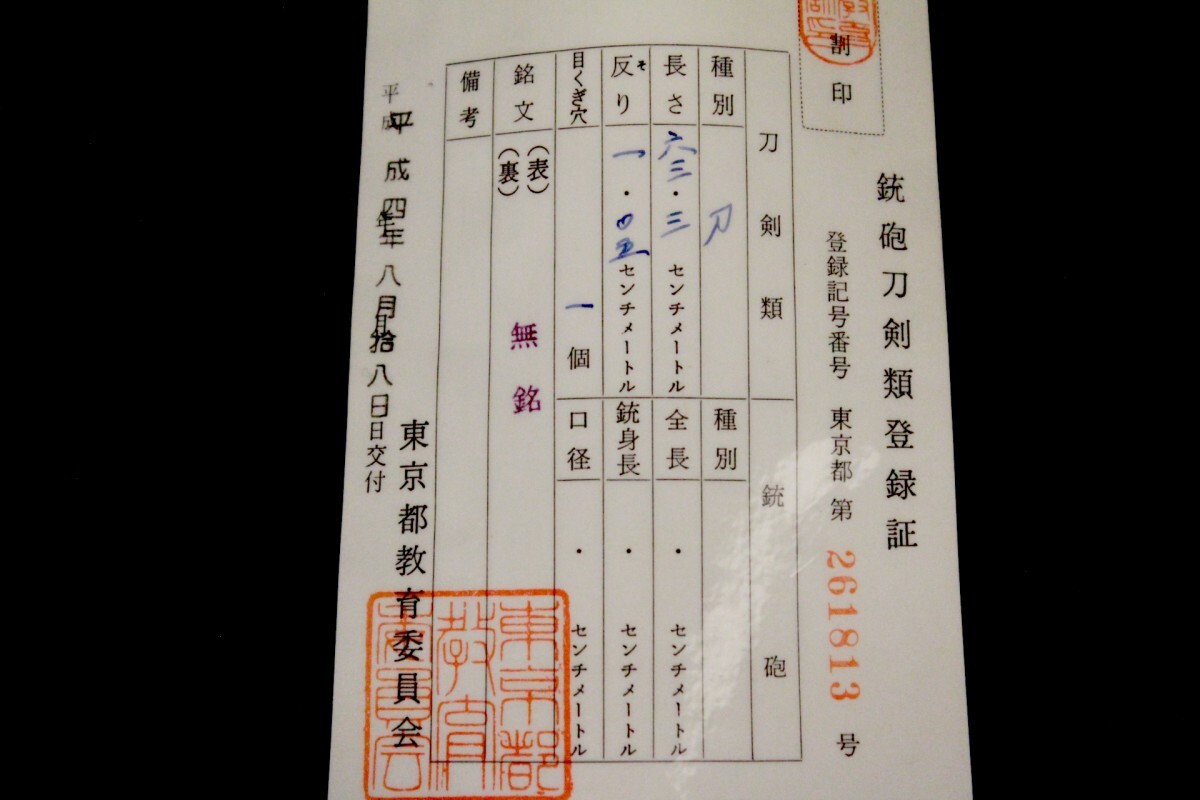 割印
銃砲刀剣類登録証
登録記号番号 東京都 第 261813 号
刀剣類
種別 刀
長さ 六三・三 センチメートル
反り 一・四五 センチメートル
そ
目くぎ穴 一個
銘文 (表) 無銘
(裏)
備考
銃砲
種別
全長 ・ センチメートル
銃身長 ・ センチメートル
口径 ・ センチメートル
平成四年八月拾八日
平成 年 月 日交付
東京都教育委員会
東京都
教育
委員会